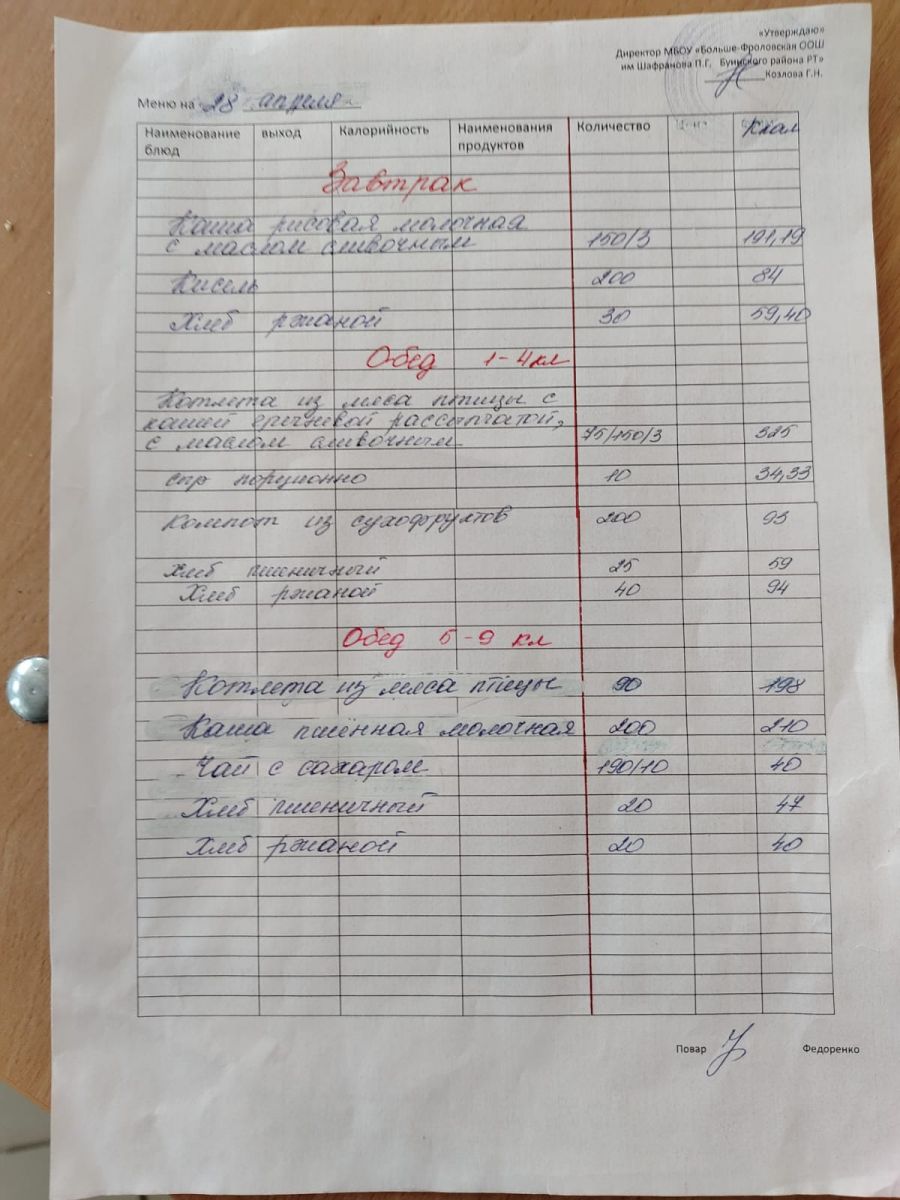 «Утверждаю»
Директор МБОУ «Больше-Фроловская ООШ
им Шафранова П.Г. Буинского района РТ»
Козлова Г.Н.
Меню на 28 апреля
Наименование блюд выход Калорийность Наименования продуктов Количество Цена Ккал
Завтрак
Каша рисовая молочная
с маслом сливочным 150/3 191,19
Кисель 200 84
Хлеб ржаной 30 59,40
Обед 1-4 кл
Котлета из мяса птицы с
кашей гречневой рассыпчатой,
с маслом сливочным 75/150/3 325
сыр порционно 10 34,33
Компот из сухофруктов 200 93
Хлеб пшеничный 25 59
Хлеб ржаной 40 94
Обед 5-9 кл
Котлета из мяса птицы 90 198
Каша пшённая молочная 200 210
Чай с сахаром 190/10 40
Хлеб пшеничный 20 47
Хлеб ржаной 20 40
Повар Федоренко